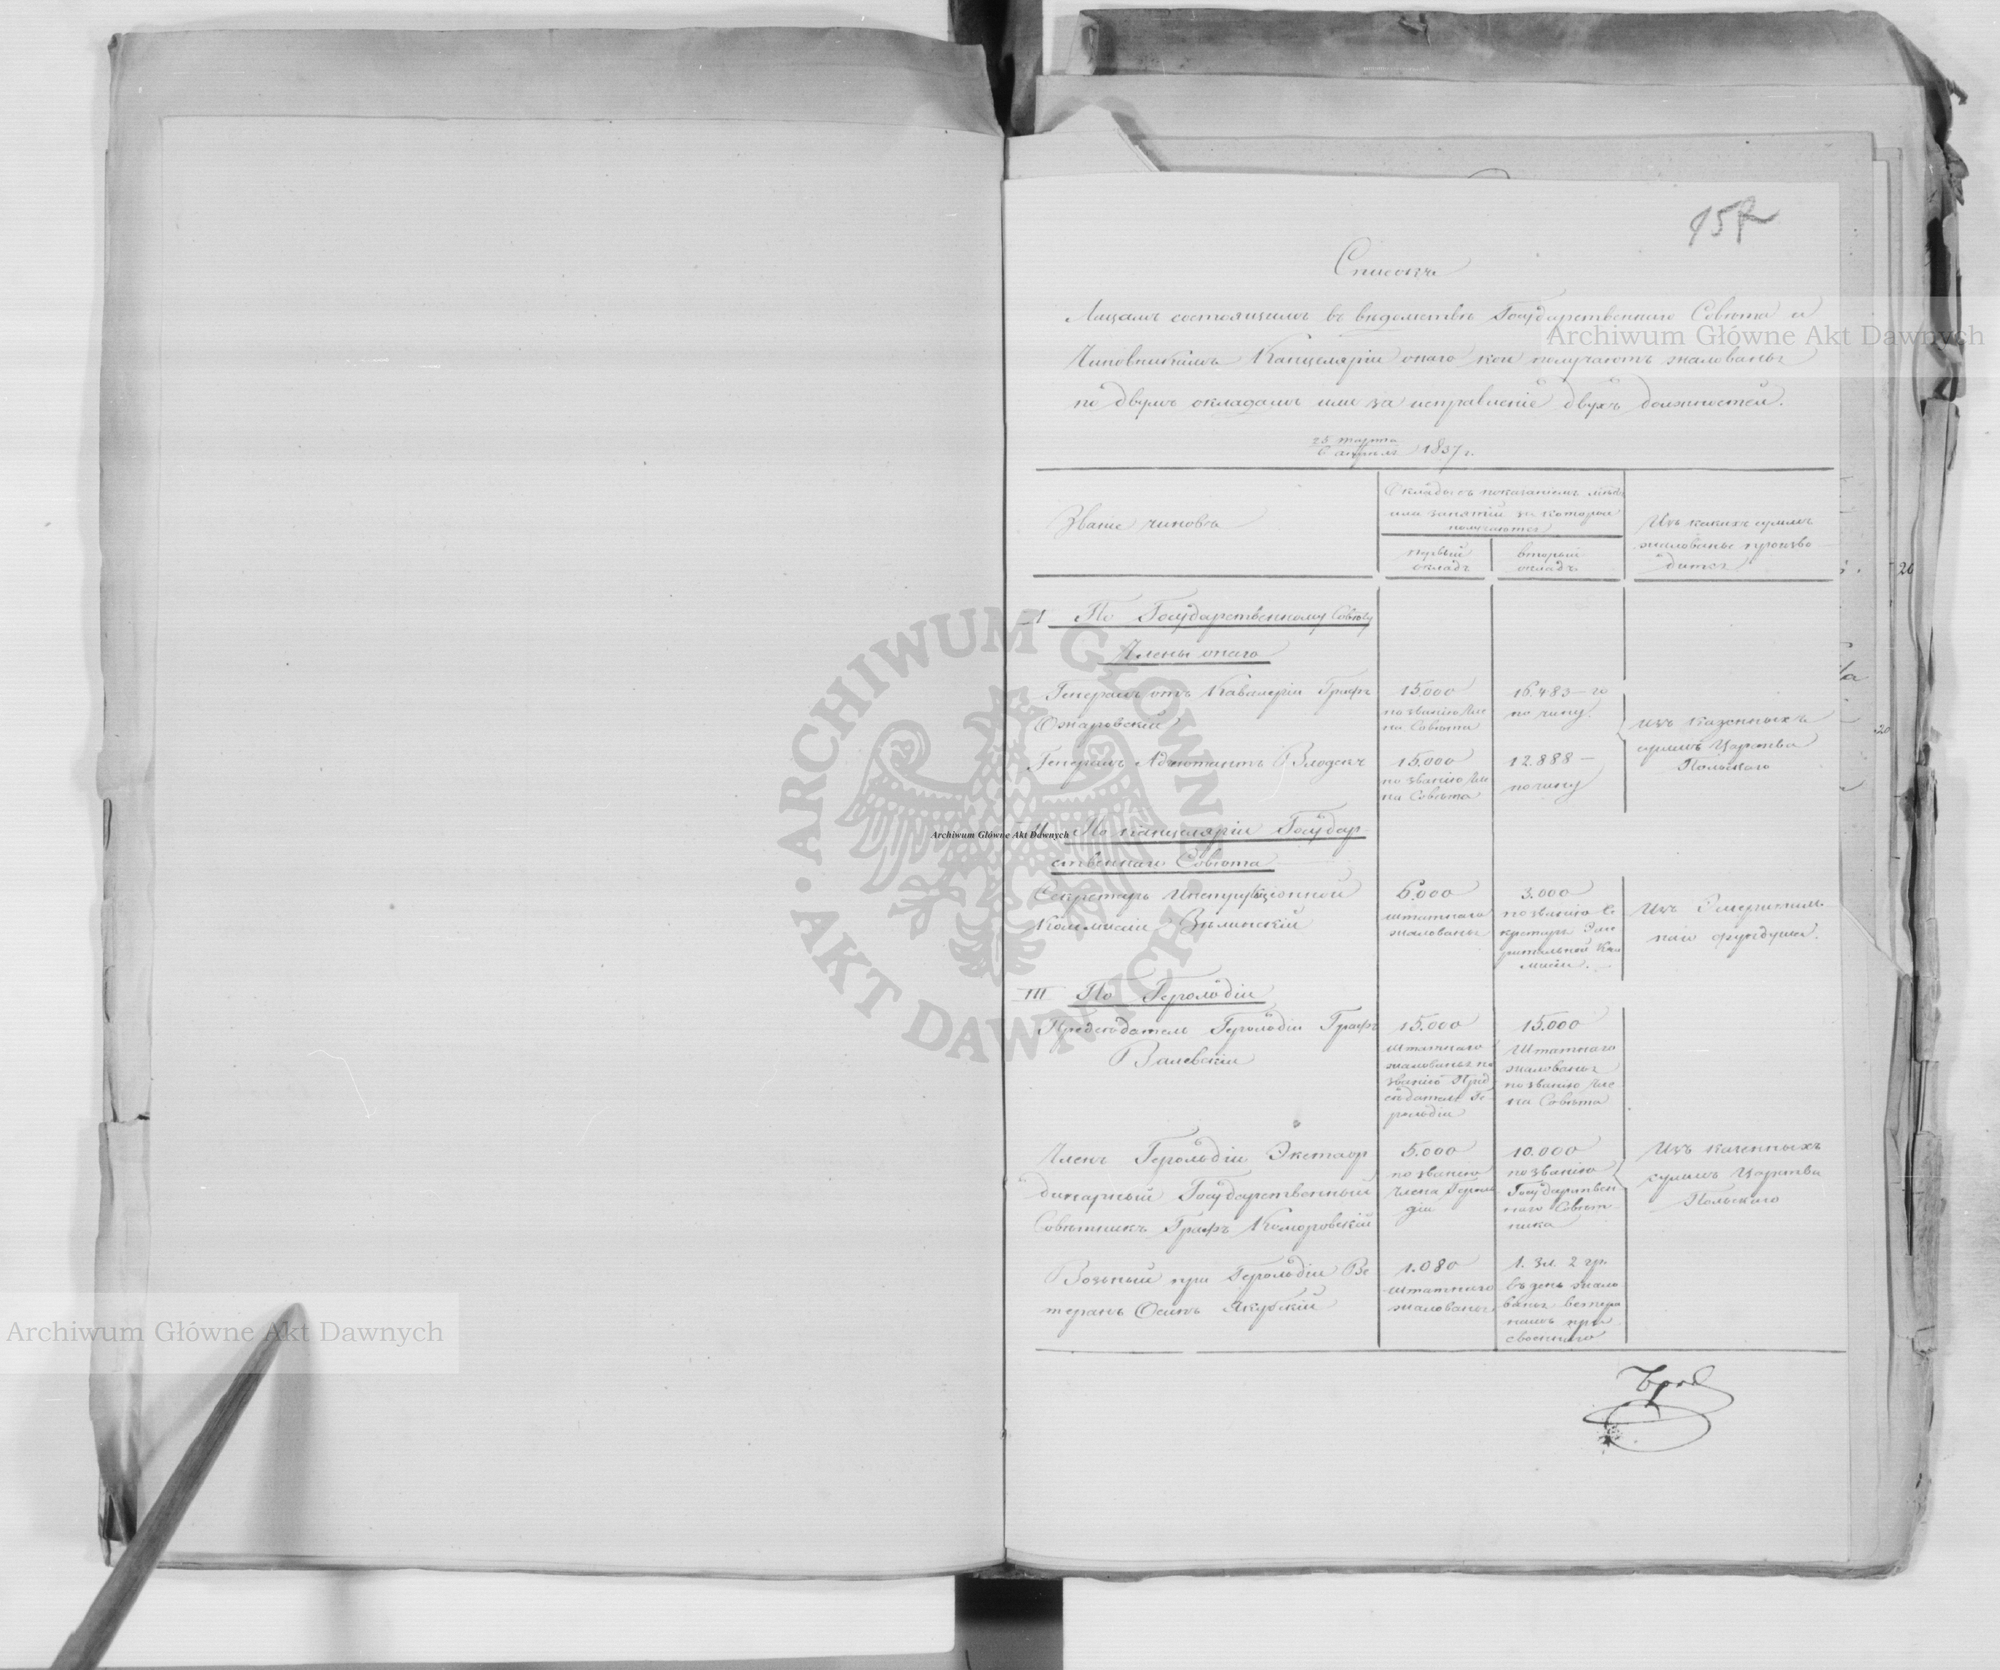 Списокъ
Лицамъ состоящимъ въ вѣдомствѣ Государственнаго Совѣта и
Чиновникамъ Канцеляріи онаго кои получаютъ жалованье
по двумъ окладамъ или за исправленіе двухъ должностей.
25 марта
6 апрѣля 1837 г.
Званіе чиновъ
Оклады съ показаніемъ
или занятій за которыя
получаются
первый
окладъ
вторый
окладъ
Изъ какихъ суммъ
жалованье произво-
дится
I По Государственному Совѣту
Члены онаго
Генералъ отъ Кавалеріи Графъ
Ожаровскій
15.000
по званію Чле
на Совѣта
16.483
по чину.
Генералъ Адъютантъ Влодекъ
15.000
по званію Чле
на Совѣта
12.888 —
по чину
Изъ казенныхъ
суммъ Царства
Польскаго
II По канцеляріи Государ
ственнаго Совѣта
Секретарь Инструкціонной
Коммисіи Зѣлинскій
6.000
штатнаго
жалованья
3.000
по званію Се
кретаря Эме
ритальной Ком
мисіи.
Изъ Эмериталь
наго фундуша.
III По Герольдіи
Предсѣдатель Герольдіи Графъ
Валевскій
15.000
штатнаго
жалованья по
званію Пред
сѣдателя Ге-
рольдіи
15.000
Штатнаго
жалованья
по званію Чле
на Совѣта
Членъ Герольдіи Экстраор
динарный Государственный
Совѣтникъ Графъ Коморовскій
5.000
по званію
члена Героль
діи
10.000
по званію
Государствен-
наго Совѣт-
ника
Изъ казенныхъ
суммъ Царства
Польскаго
Возьный при Герольдіи Ве
теранъ Осипъ Якубскій
1.080
штатнаго
жалованья
1. зл. 2 гр.
въ день жало-
ванья ветера
намъ при-
своеннаго
Archiwum Główne Akt Dawnych
Archiwum Główne Akt Dawnych
Archiwum Główne Akt Dawnych
ARCHIWUM GŁÓWNE · AKT DAWNYCH ·